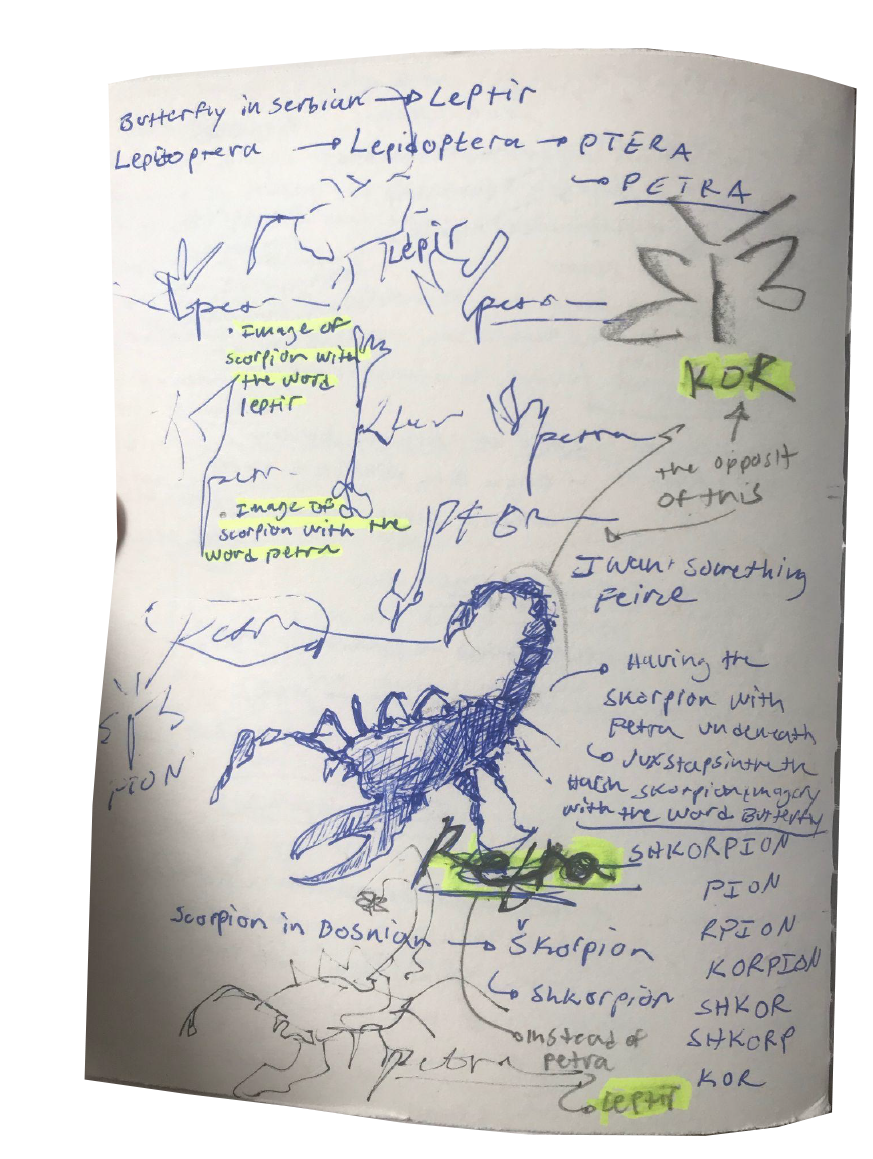 Butterfly in Serbian → Leptir
Lepidoptera → Lepidoptera → PTERA
PETRA
Lepir
petra
petra
• Image of
scorpion with
the word
leptir
KOR
the opposit
of this
petra
petr
• Image of
scorpion with the
word petra
I want something
Feirce
Petra
Having the
skorpion with
Petra underneath
Harsh skorpion imagery
with the word Butterfly
PION
Petra
SHKORPION
PION
RPION
KORPION
SHKOR
SHKORP
KOR
Scorpion in Bosnian → Škorpion
Shkorpion
instead of
petra
petra
Leptir